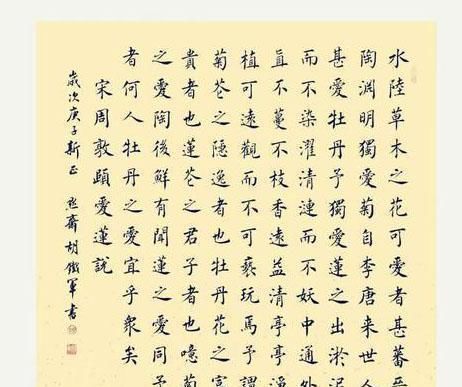 水陸草木之花可愛者甚蕃
陶渊明獨愛菊自李唐来世人
甚愛牡丹予獨愛蓮之出淤
而不染濯清漣而不妖中通外
直不蔓不枝香遠益清亭亭
植可遠觀而不可褻玩焉予謂
菊花之隐逸者也牡丹花之富
貴者也蓮花之君子者也噫菊
之愛陶後鮮有聞蓮之愛同予
者何人牡丹之愛宜乎衆矣
宋周敦頤愛蓮説
歲次庚子新正 齋胡鐵軍書